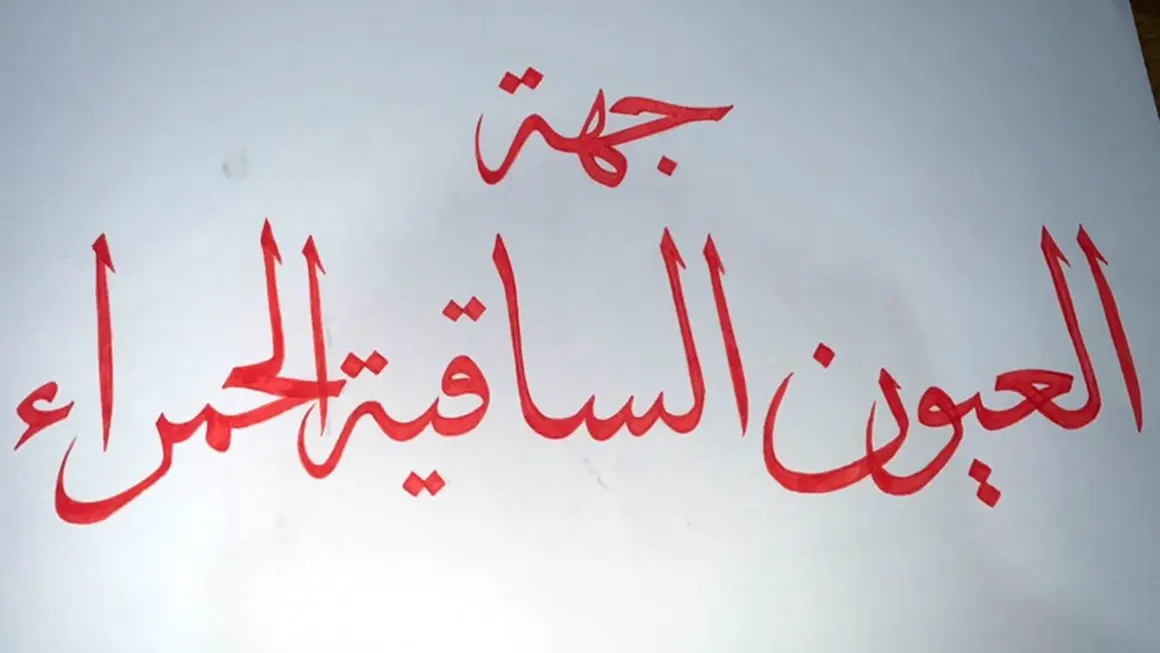 جهة
العيون الساقية الحمراء